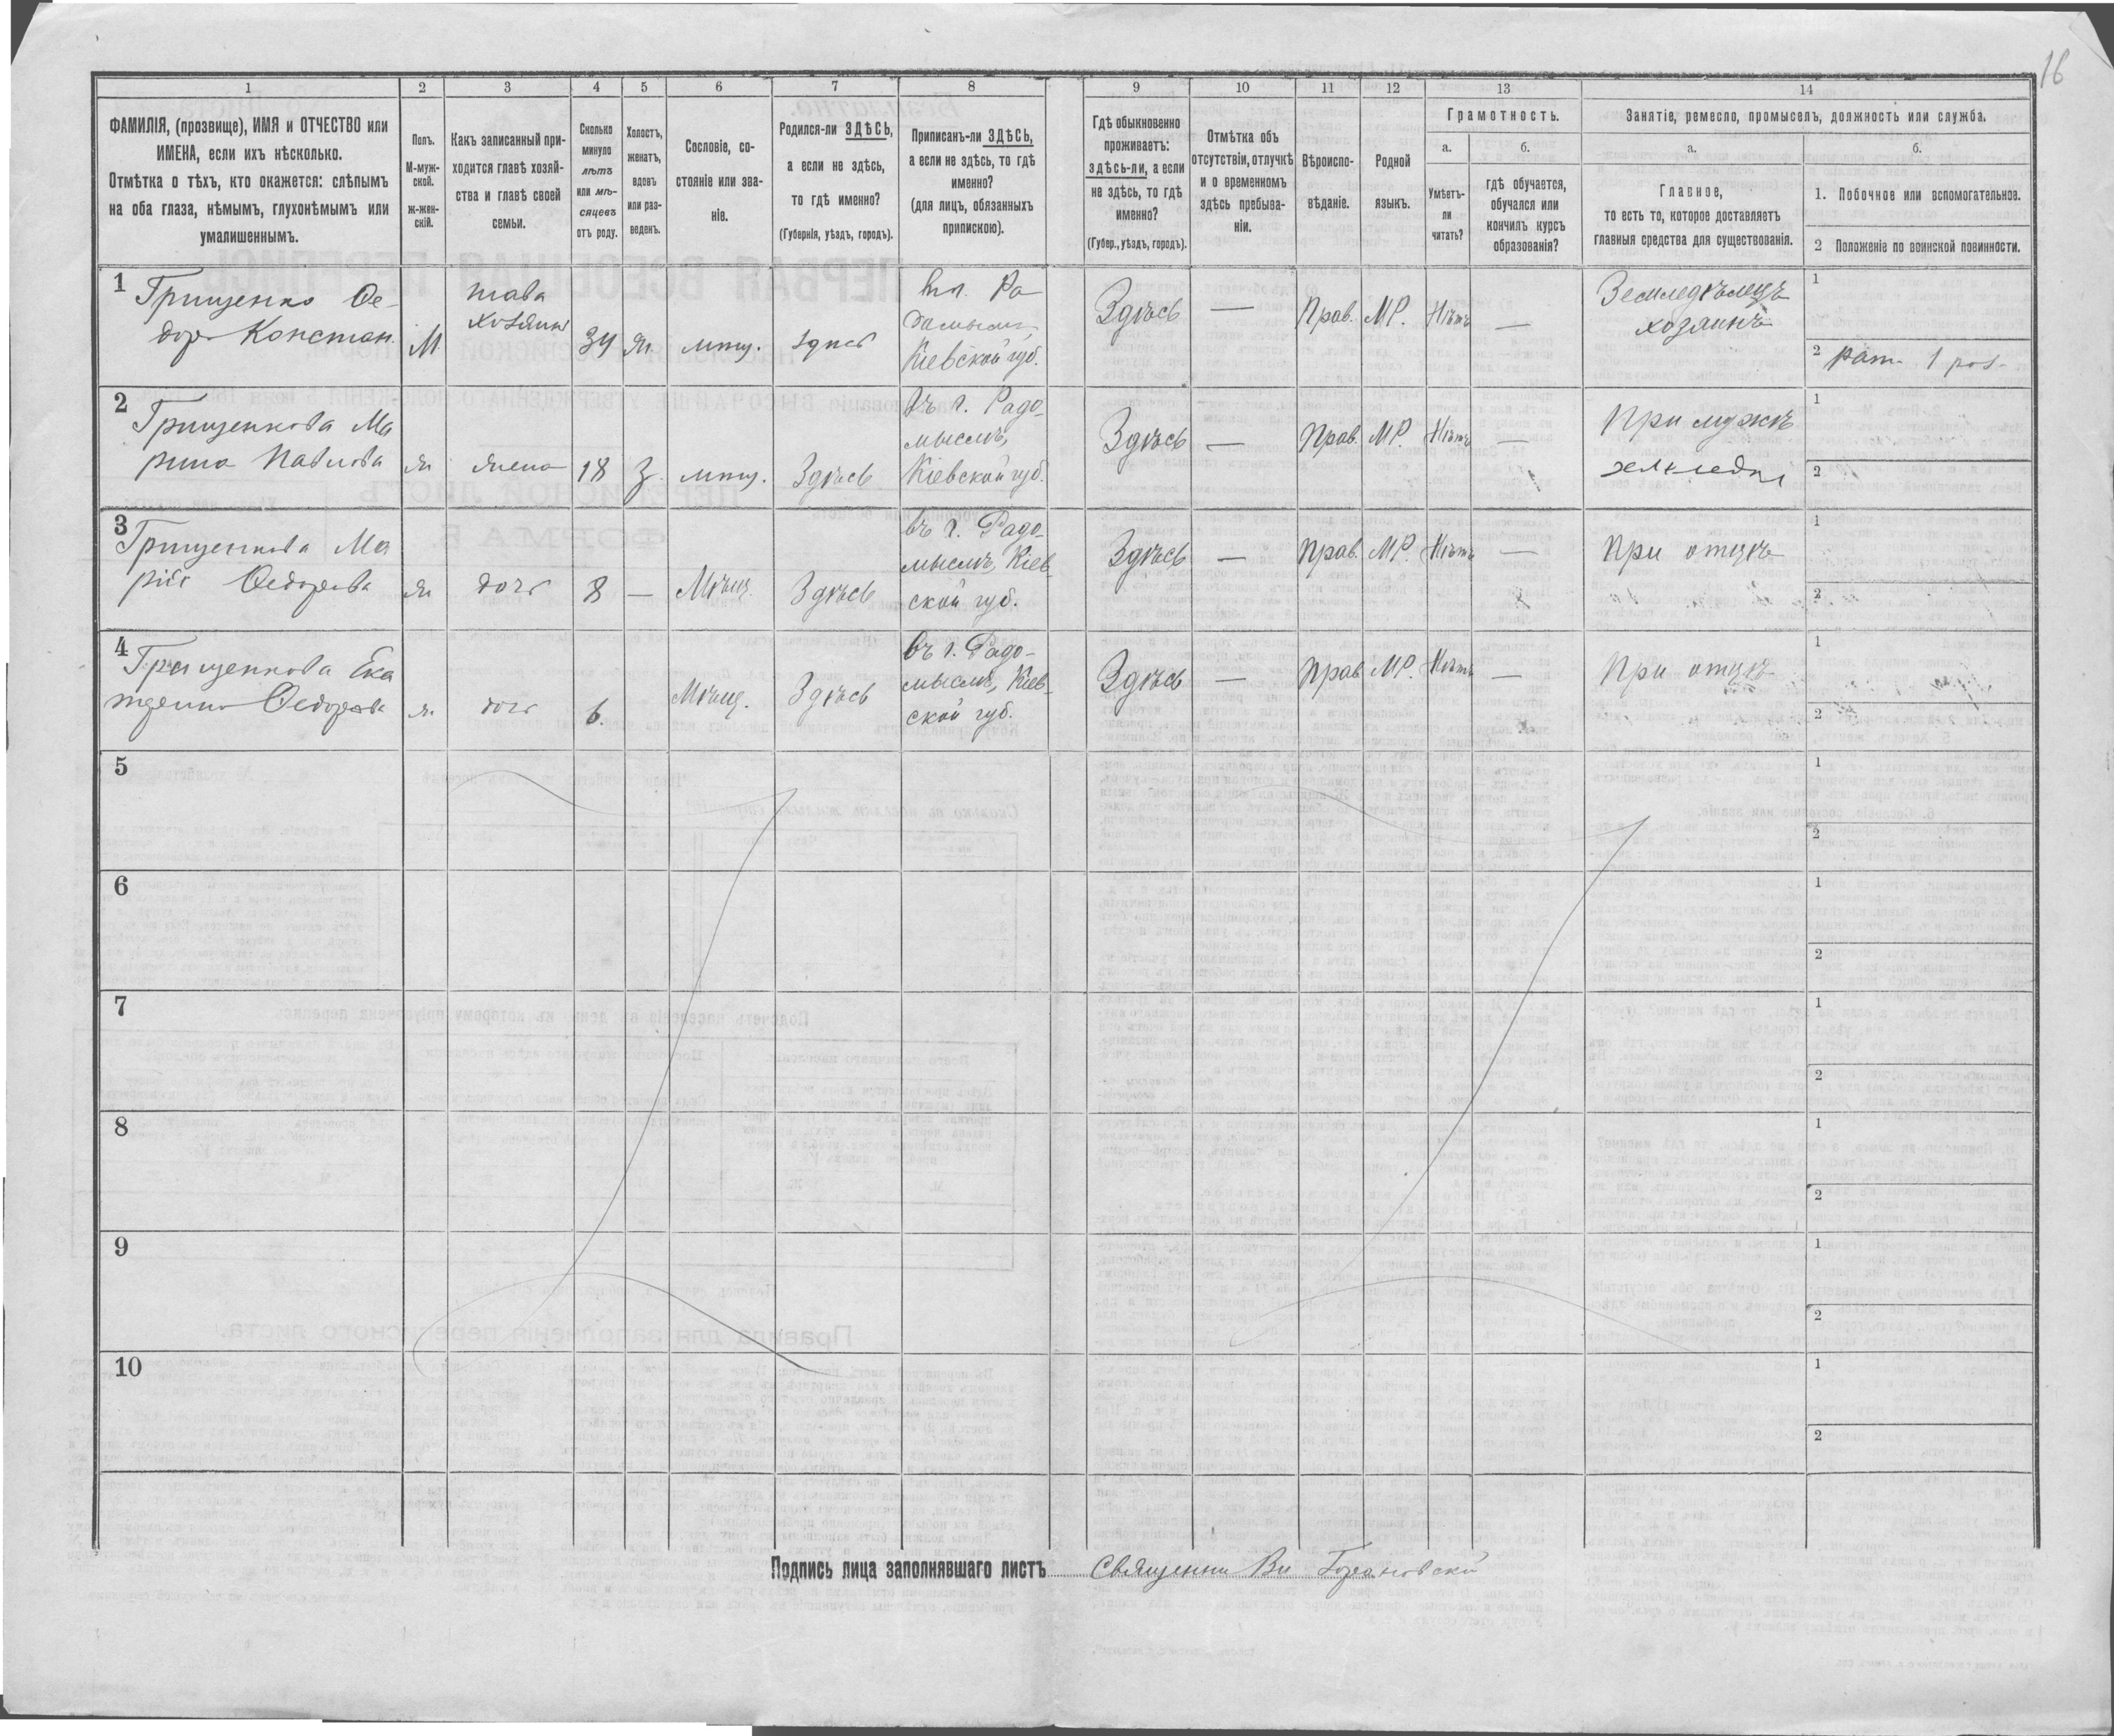 16
1
2
3
4
5
6
7
8
9
10
11
12
13
14
ФАМИЛІЯ, (прозвище), ИМЯ и ОТЧЕСТВО или
ИМЕНА, если ихъ нѣсколько.
Отмѣтка о тѣхъ, кто окажется: слѣпымъ
на оба глаза, нѣмымъ, глухонѣмымъ или
умалишеннымъ.
Полъ.
М-муж-
ской.
ж-жен-
скій.
Какъ записанный при-
ходится главѣ хозяй-
ства и главѣ своей
семьи.
Сколько
минуло
лѣтъ
или мѣ-
сяцевъ
отъ роду.
Холостъ,
женатъ,
вдовъ
или раз-
веденъ.
Сословіе, со-
стояніе или зва-
ніе.
Родился-ли ЗДѢСЬ,
а если не здѣсь,
то гдѣ именно?
(Губернія, уѣздъ, городъ).
Приписанъ-ли ЗДѢСЬ,
а если не здѣсь, то гдѣ
именно?
(для лицъ, обязанныхъ
припискою).
Гдѣ обыкновенно
проживаетъ:
здѣсь-ли, а если
не здѣсь, то гдѣ
именно?
(Губер., уѣздъ, городъ).
Отмѣтка объ
отсутствіи, отлучкѣ
и о временномъ
здѣсь пребыва-
ніи.
Вѣроиспо-
вѣданіе.
Родной
языкъ.
Грамотность.
а.
Умѣетъ-
ли
читать?
б.
гдѣ обучается,
обучался или
кончилъ курсъ
образованія?
Занятіе, ремесло, промыселъ, должность или служба.
а.
Главное,
то есть то, которое доставляетъ
главныя средства для существованія.
б.
1. Побочное или вспомогательное.
2 Положеніе по воинской повинности.
1
Грищенко Ѳе-
доръ Констан.
М
хозяинъ
34
ж
мѣщ.
здѣсь
Кіевской губ.
Здѣсь
—
Прав.
МР.
Нѣтъ
—
Земледѣлецъ
хозяинъ
1
2 рат. 1 раз.
2
Грищенкова Ма
рина Павлова
ж
жена
18
З.
мѣщ.
Здѣсь
въ г. Радо-
мыслѣ,
Кіевской губ.
Здѣсь
—
Прав.
МР.
Нѣтъ
—
При мужѣ
1
2
3
Грищенкова Ма
рія Ѳедорова
ж
дочь
8
—
Мѣщ.
Здѣсь
въ г. Радо-
мыслѣ, Кіев-
ской губ.
Здѣсь
—
Прав.
МР.
Нѣтъ
—
При отцѣ
1
2
4
Грищенкова Ека
Ѳедорова
ж.
дочь
6.
Мѣщ.
Здѣсь
въ г. Радо-
мыслѣ, Кіев-
ской губ.
Здѣсь
—
Прав
МР.
Нѣтъ
—
При отцѣ
1
2
5
1
2
6
1
2
7
1
2
8
1
2
9
1
2
10
1
2
Подпись лица заполнявшаго листъ Священни